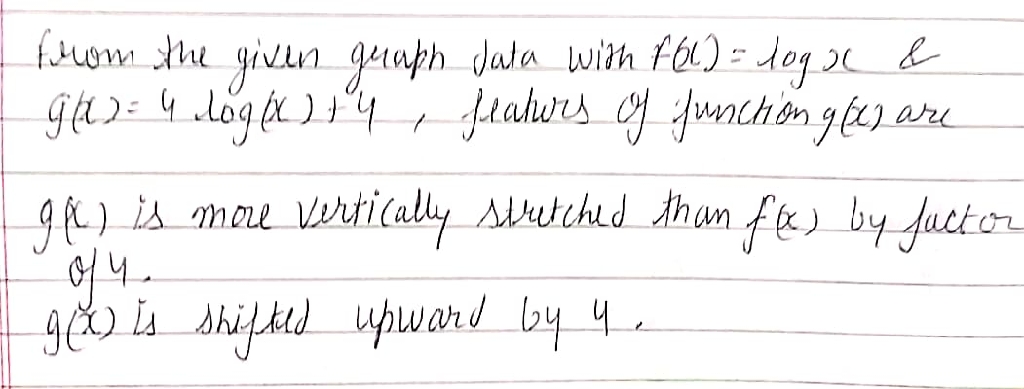 from the given graph data with f(x) = log x &
g(x) = 4 log(x) + 4 , featurs of function g(x) are
g(x) is more vertically stretched than f(x) by factor
of 4.
g(x) is shifted upward by 4 .